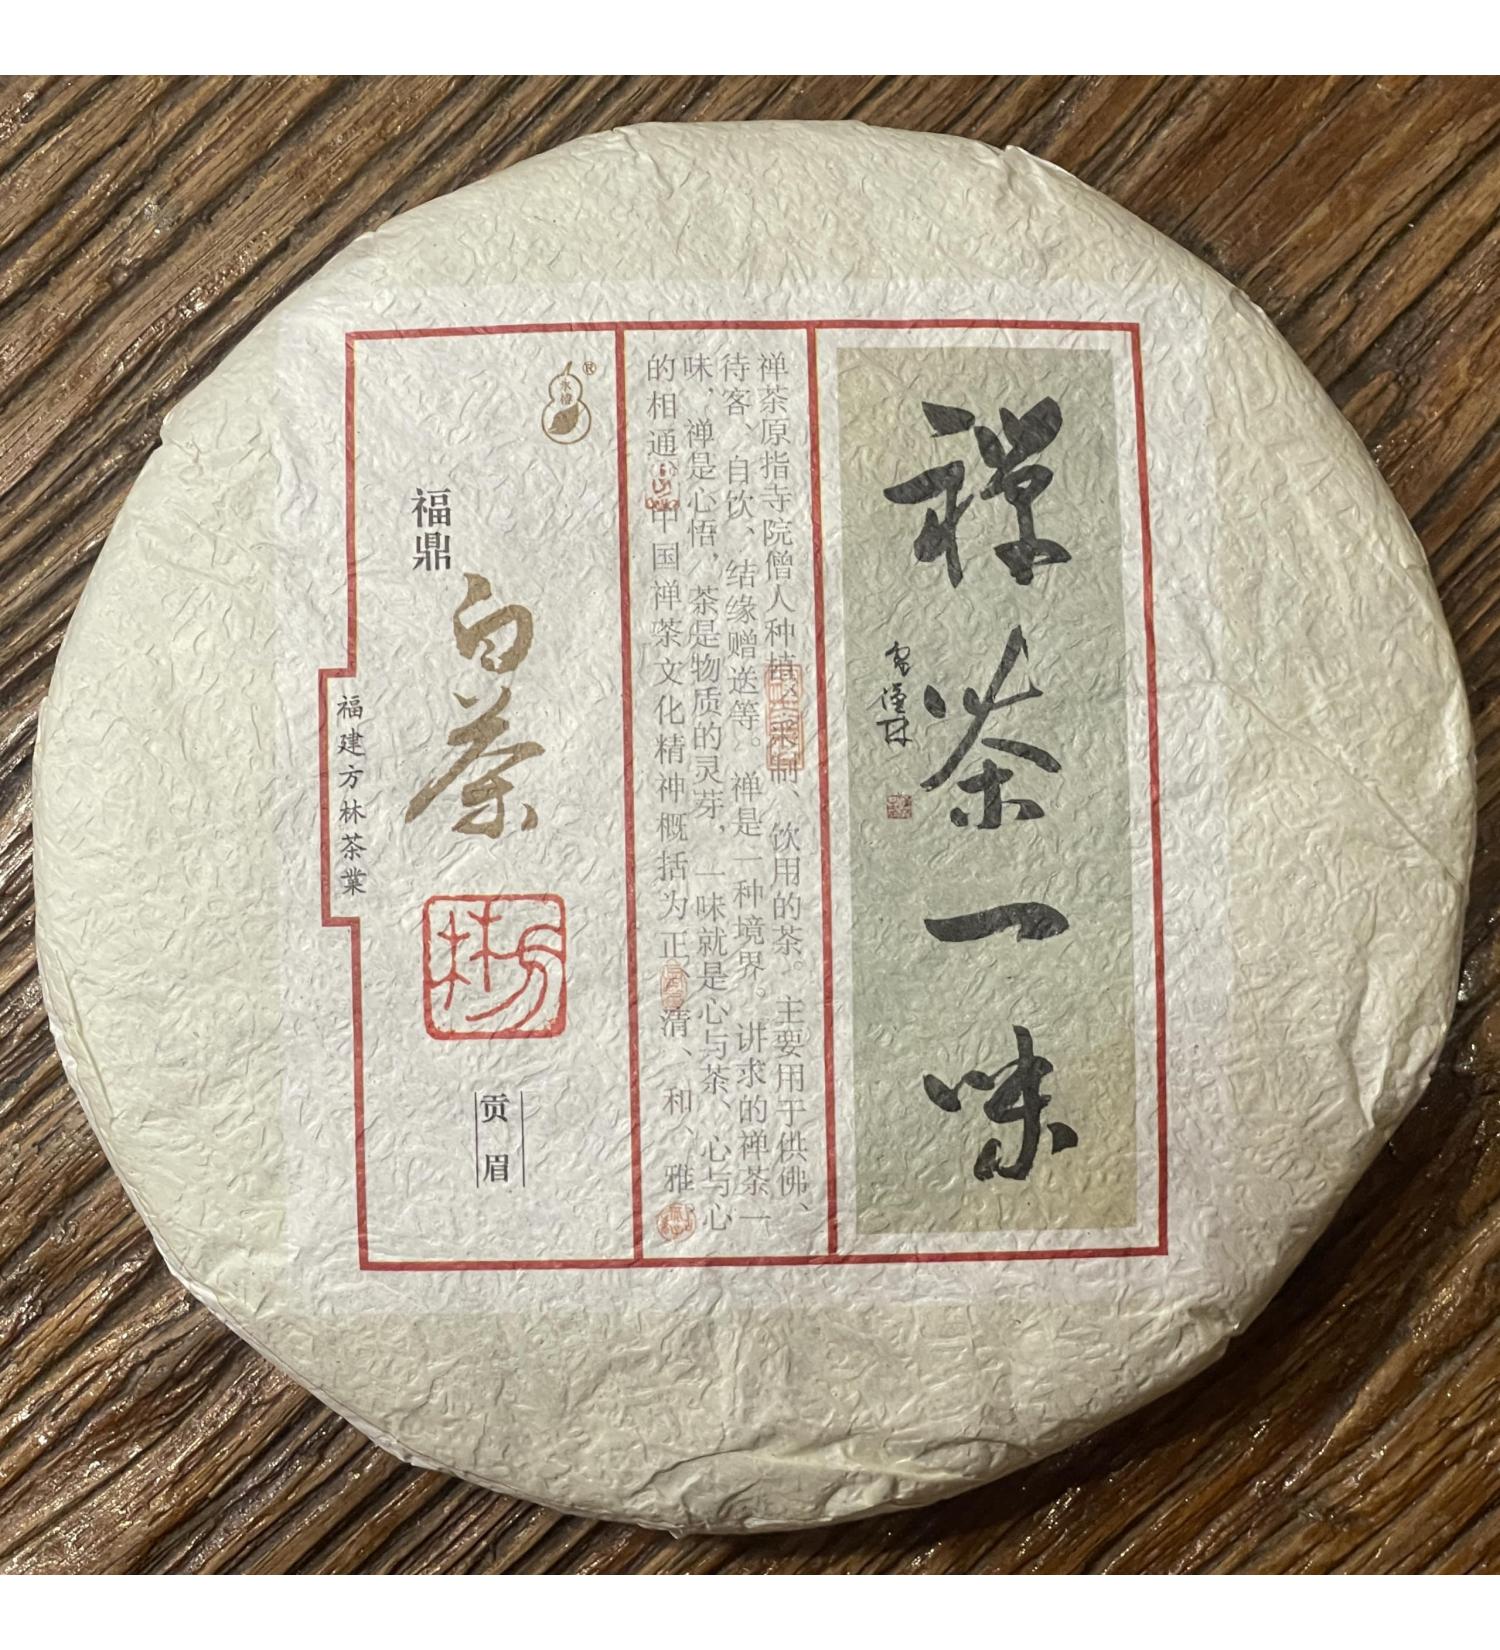 禅茶一味
禅茶原指寺院僧人种植、采制、饮用的茶。主要用于供佛、
待客、自饮、结缘赠送等。禅是一种境界。讲求的禅茶一
味，禅是心悟，茶是物质的灵芽，一味就是心与茶、心与心
的相通。中国禅茶文化精神概括为正、清、和、雅
永禧
®
福鼎
白茶
方林
贡眉
福建方林茶業